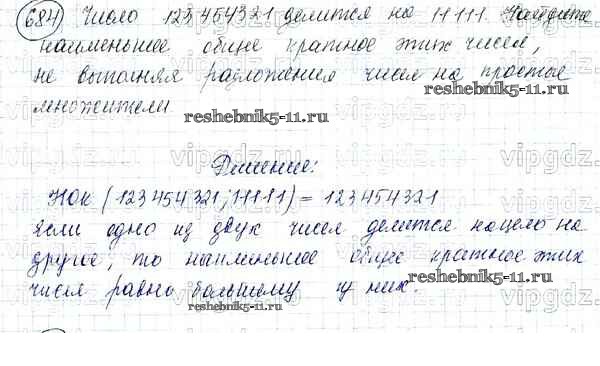 684) Число 123454321 делится на 11111. Найдите
наименьшее общее кратное этих чисел,
не выполняя разложения чисел на простые
множители
reshebnik5-11.ru
reshebnik5-11.ru
Решение:
НОК (123454321; 11111) = 123454321
если одно из двух чисел делится нацело на
другое, то наименьшее общее кратное этих
reshebnik5-11.ru
числа равно большему из них.
vipgdz.ru